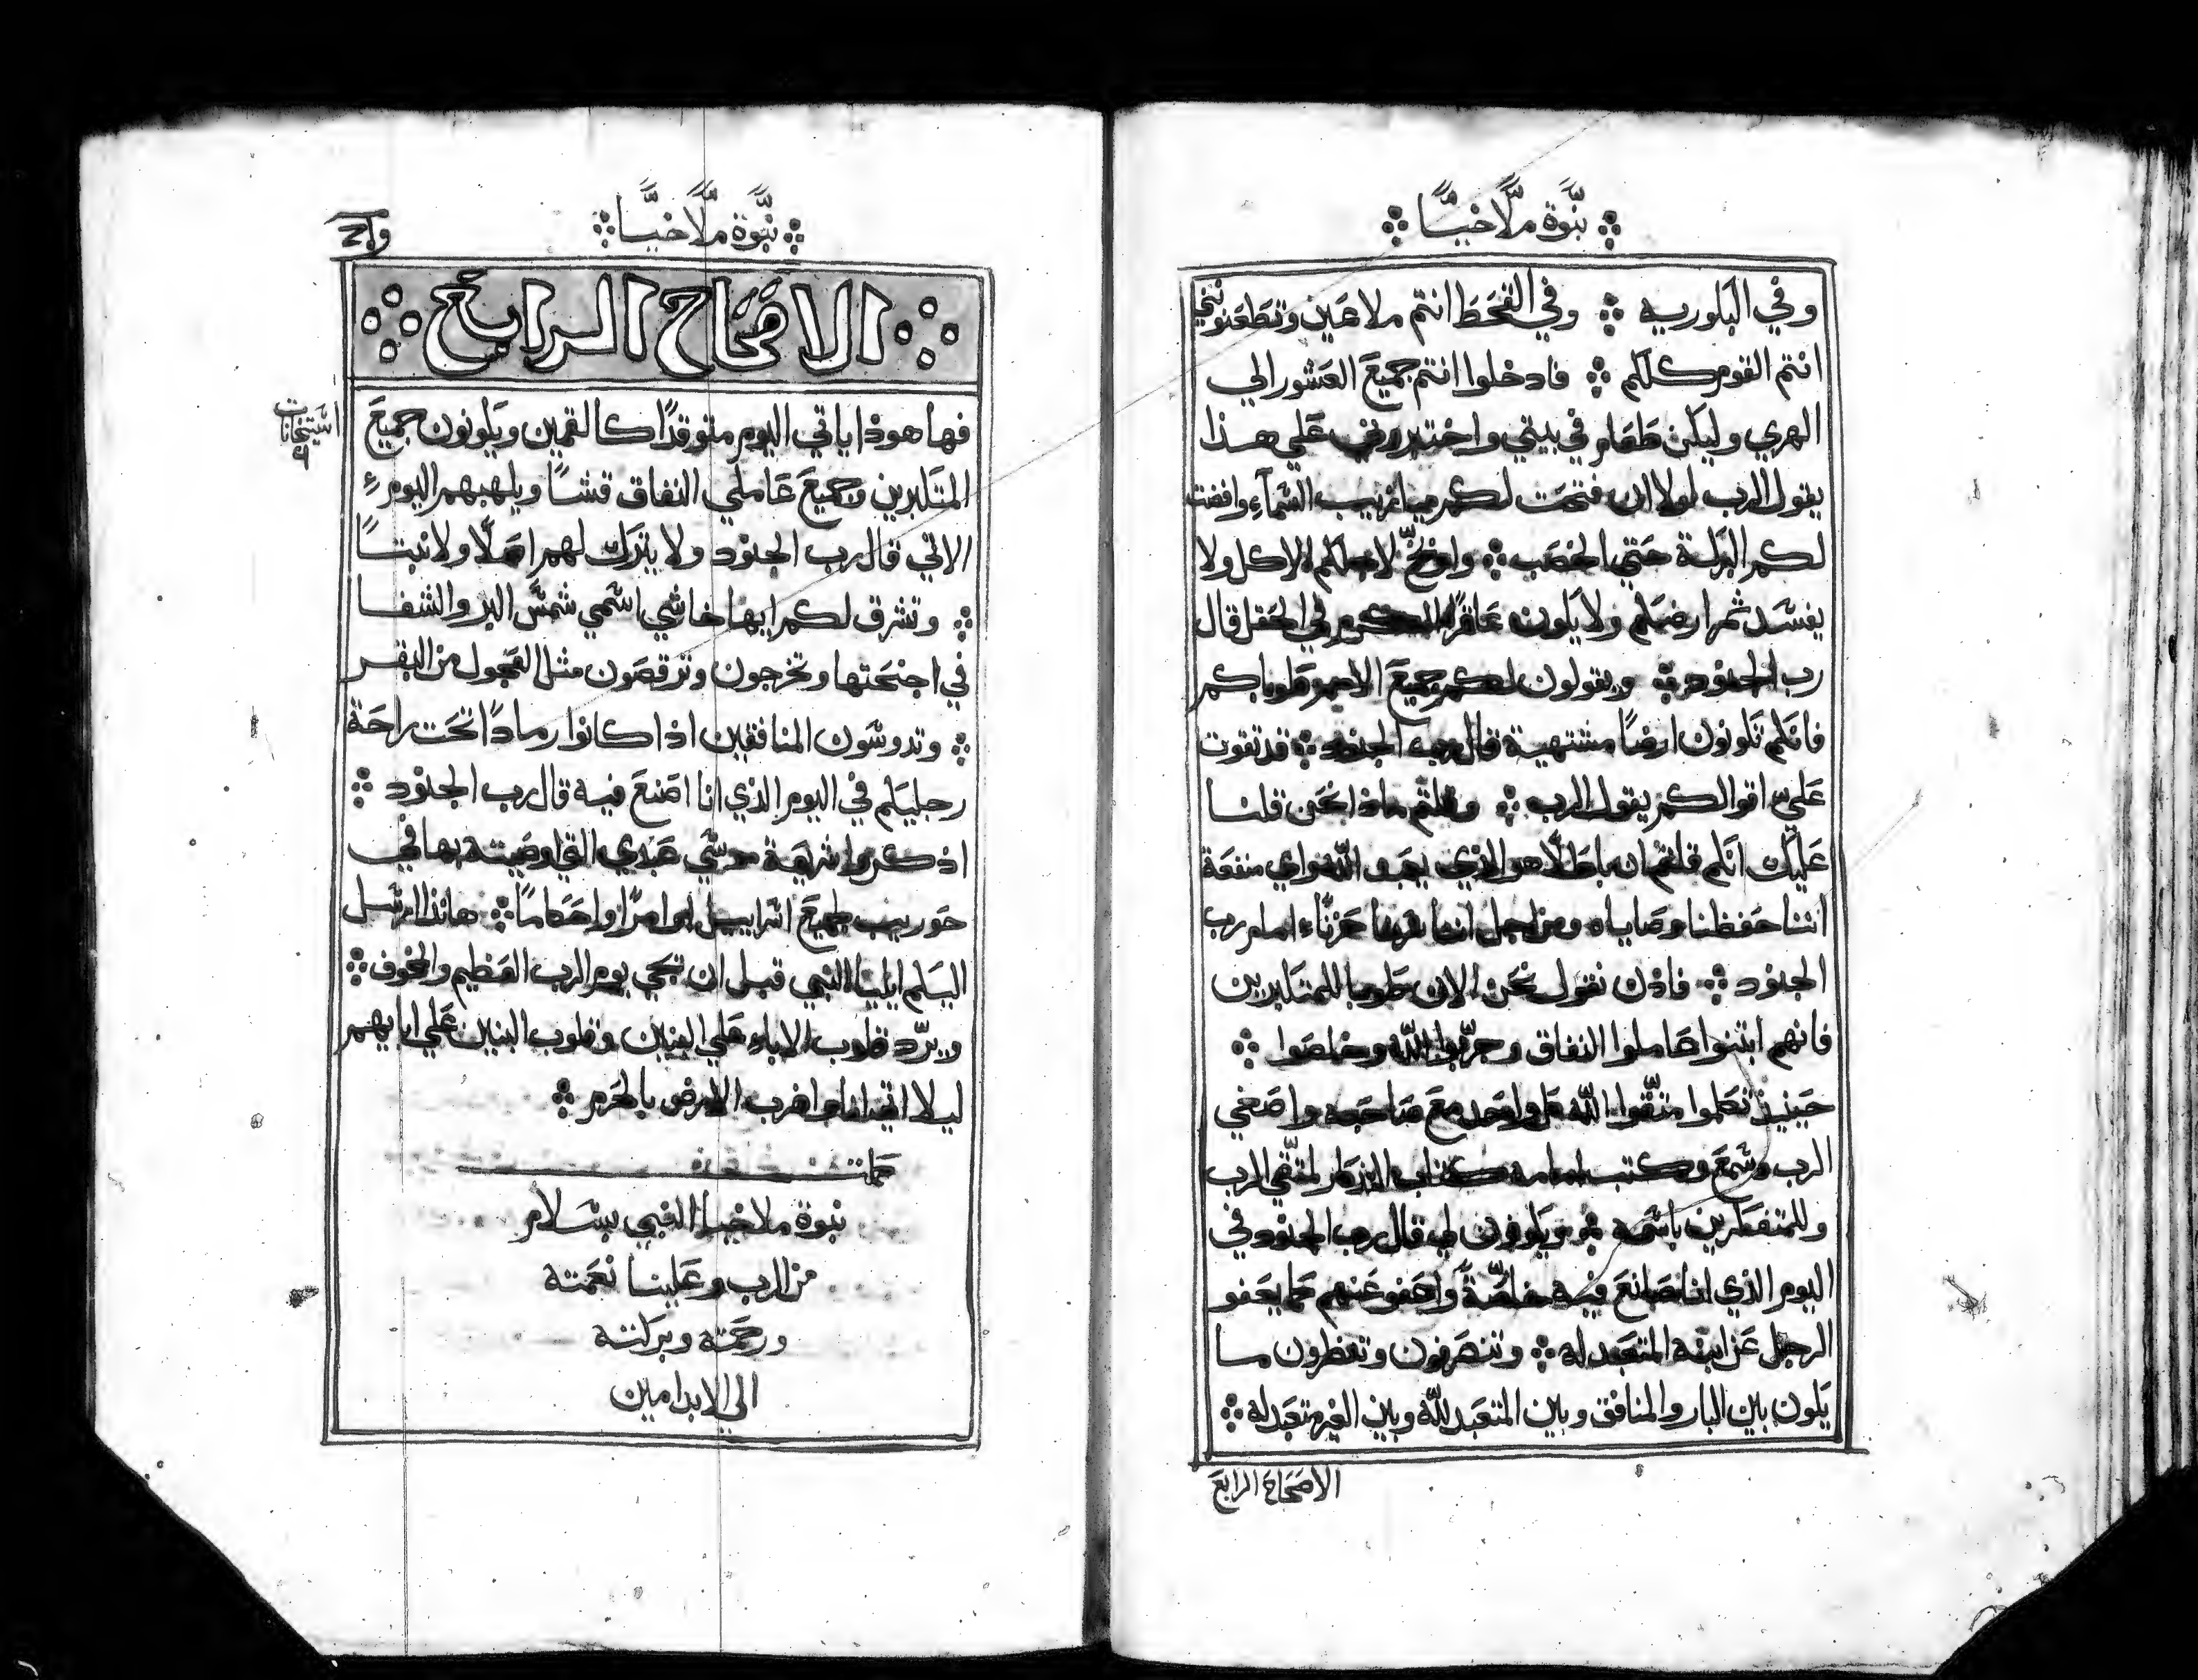 نبّوة ملّاخيّا
وفي البكوريه وفي القحَط انتم ملاعَين وتطعَنونني
انتم القوم كلكم فادخلوا انتم جميعَ العَشور الي
الهري وليكن طعَام في بيتي واختبروني عَلي هذا
يقول الرب لولا ان فتحَت لكم ميازيب السَمآءِ وافضت
لكم البركة حَتي الخصَب لاجلكم الاكل ولا
يفسَد ثمر ارضكم ولا يكون عَاقرًا الكرم في الحَقل قال
رب الجنود ويقولون لكم جميعَ الامم طوباكم
فانكم تكونون ارضًا مشتهية قال رب الجنود قد تقوت
عَليّ اقوالكم يقول الرب وقلتم ماذا نحَن قلنا
عَليك انكم قلتم ان باطلًا هو الذي يعَبد اللّه واي منفعَة
اننا حَفظنا وصَاياه ومن اجل اننا حَزنّاء امام رب
الجنود فاذن نقول نحَن الان طوبا للمتكبرين
فانهم ابتنوا عَاملوا النفاق وجرّبوا اللّه وخلصَوا
حَينيذ تكلموا متّقوا اللّه كل واحَد معَ صَاحَبه واصَغي
الرب وسَمعَ وكتب امامه كتاب التذكار لمتّقي الرب
وللمتفكرين باسَمه ويكونون لي قال رب الجنود في
اليوم الذي انا صَانعَ فيه خاصَّةً واعَفو عَنهم كما يعَفو
الرجل عَن ابنه المتعَبد له وتنصَرفون وتنظرون ما
يكون بين البار والمنافق وبين المتعَبد للّه وبين الغير متعَبد له
الاصَحَاحَ الرابعَ
نبّوة ملّاخيّا
الاصَحَاحَ الرابعَ
فها هوذا ياتي اليوم متوقدًا كالقمين ويكونون جميعَ
المتكبرين وجميعَ عَاملي النفاق قشًا ويلهبهم اليوم
الاتي قال رب الجنود ولا يترك لهم اصَلًا ولا نبتًا
وتشرق لكم ايها خاشي اسَمي شمسَ البر والشفا
في اجنحَتها وتخرجون وترقصَون مثل العَجول من البقر
وتدوسَون المنافقين اذا كانوا رمادًا تحَت راحَة
رجليكم في اليوم الذي انا اصَنعَ فيه قال رب الجنود
اذكروا شريعَة موسَي عَبدي التي اوصَيته بها في
حَوريب لجميعَ اسَراييل اوامرًا واحَكامًا هانذا ارسَل
اليكم ايليا النبي قبل ان تجي يوم الرب العَظيم والمخوف
ويردّ قلوب الاباء عَلي البنين وقلوب البنين عَلي ابايهم
ليلا اتي انا واضرب الارض بالحَرم
كملت
نبوة ملاخيا النبي بسَلام
من الرب وعَلينا نعَمته
ورحَمته وبركته
الي الابد امين